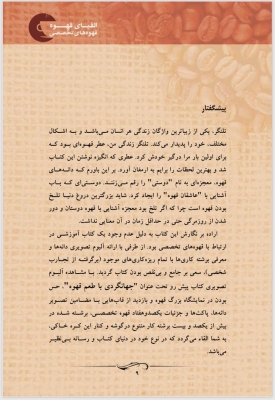 الفبای قهوه
قهوه‌های تخصصی
پیشگفتار
تلنگر، یکی از زیباترین واژگان زندگی هر انسان می‌باشد و به اشکال
مختلف، خود را پدیدار می‌کند. تلنگر زندگی من، عطر قهوه‌ای بود که
برای اولین بار مرا درگیر خودش کرد. عطری که انگیزه نوشتن این کتاب
شد و بهترین لحظات را برایم به ارمغان آورد. بر این باورم که دانه‌های
قهوه، معجزه‌ای به نام "دوستی" را رقم می‌زنند. دوستی‌ای که باب
آشنایی با "عاشقان قهوه" را ایجاد کرد. شاید بزرگترین دروغ دنیا تلخ
بودن قهوه است چرا که اگر تلخ بود معجزه آشنایی با قهوه دوستان و دور
شدن از روزمرگی حتی در حداقل زمان در آن معنایی نداشت.
اراده بر نگارش این کتاب به دلیل عدم وجود یک کتاب آموزشی در
ارتباط با قهوه‌های تخصصی بود. از طرفی با ارائه آلبوم تصویری دانه‌ها و
معرفی برشته کاری‌ها با تمام ریزه‌کاری‌های موجود (برگرفته از تجارب
شخصی)، سعی بر جامع و بی‌نقص بودن کتاب گردید. با مشاهده آلبوم
تصویری کتاب پیش رو تحت عنوان "جهانگردی با طعم قهوه"، حس
بودن در نمایشگاه بزرگ قهوه و بازدید از قاب‌هایی با مضامین تصویر
دانه‌ها، پاکت‌ها و جزئیات یکصدوهفتاد قهوه تخصصی، برشته شده در
بیش از یکصد و بیست برشته کار متنوع درگوشه و کنار این کره خاکی،
به شما القاء می‌گردد که در نوع خود در دنیای کتاب و رسانه بی‌نظیر
می‌باشد.
۹